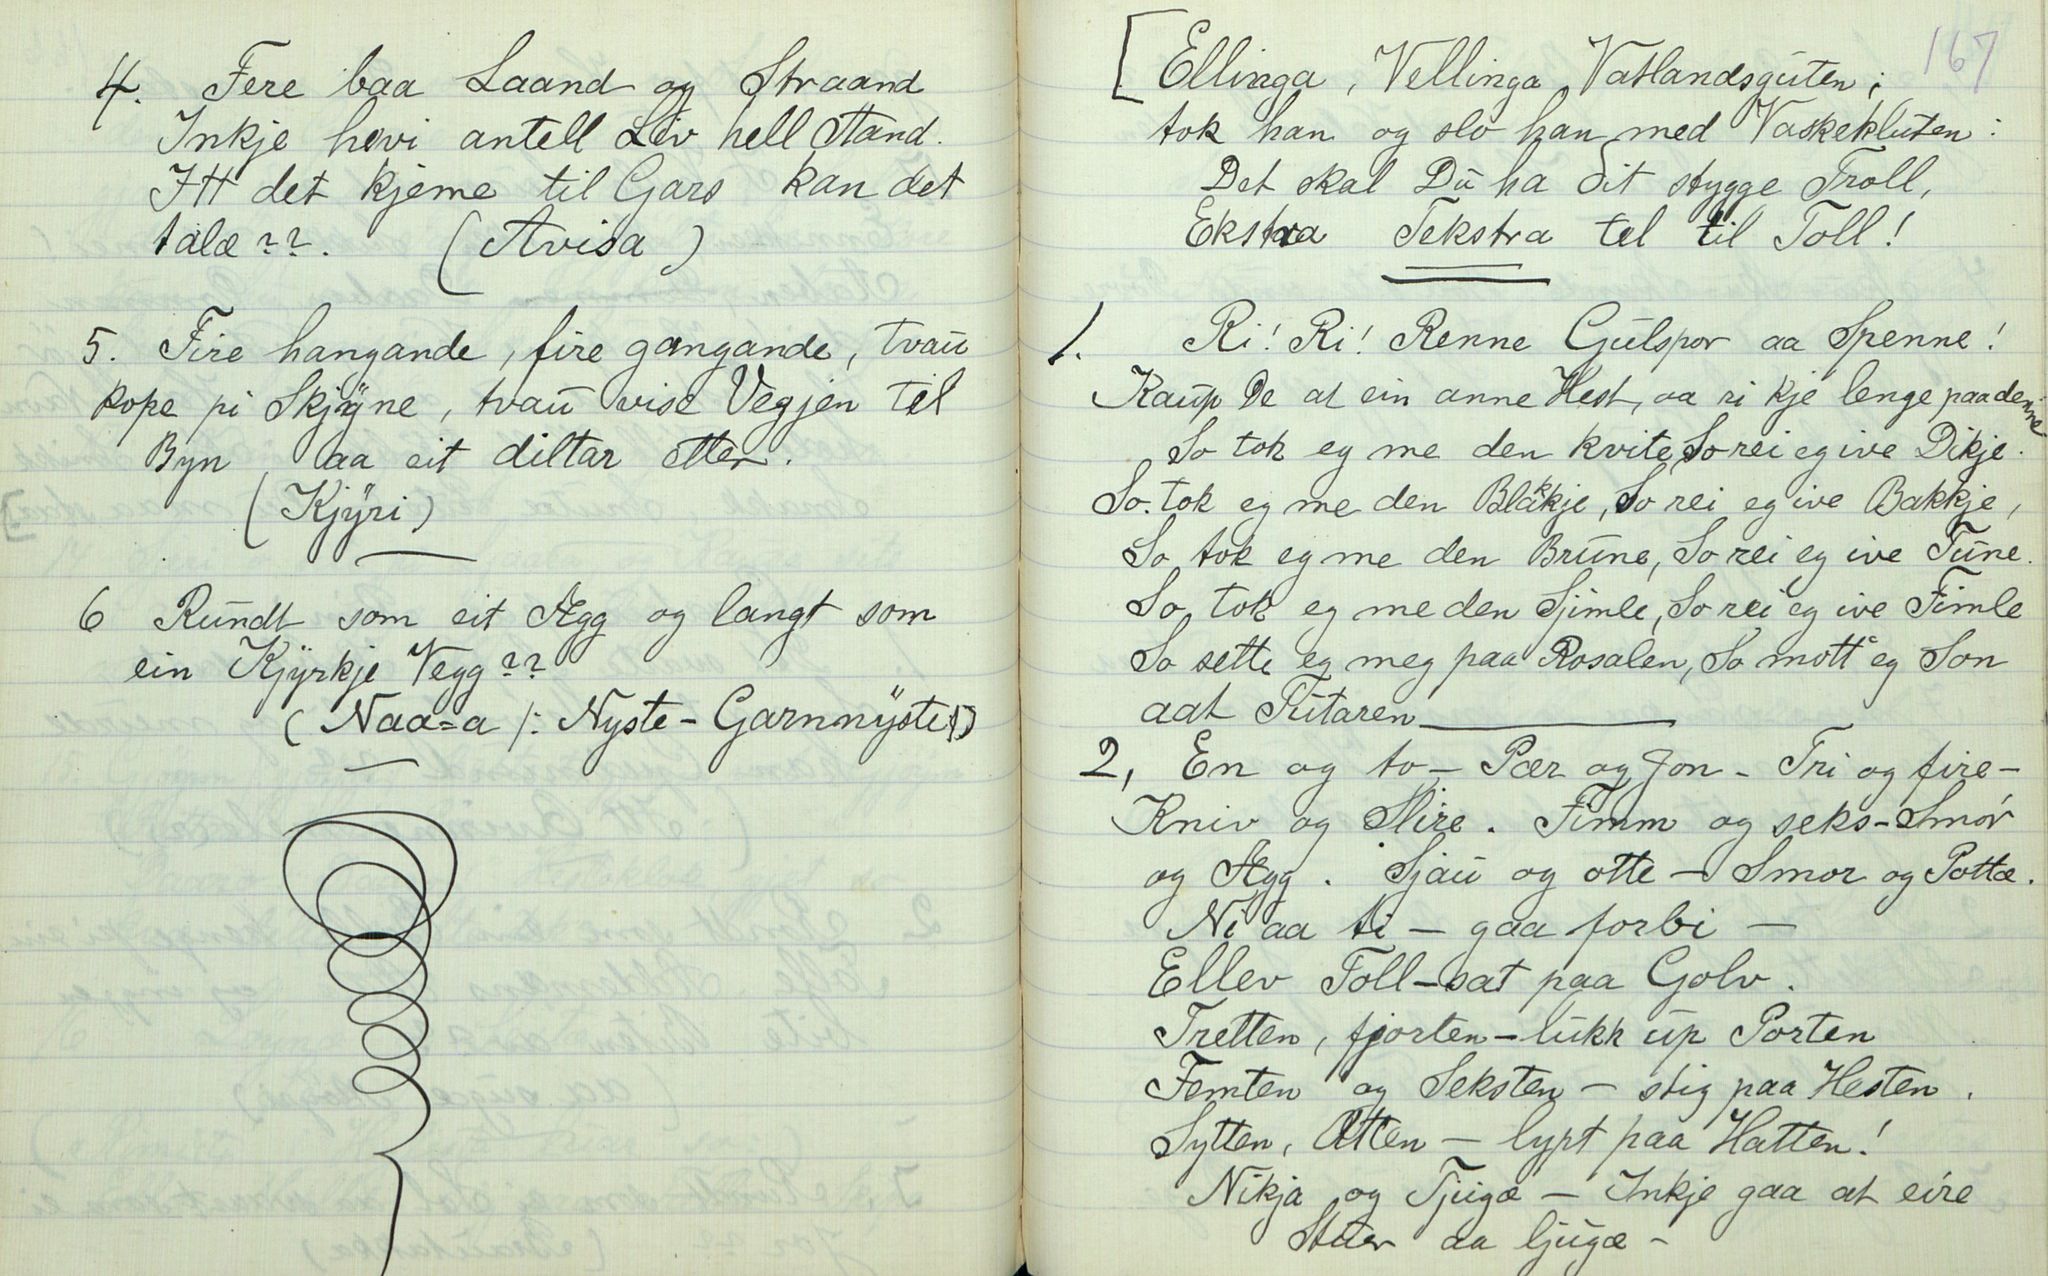 4. Fere baa Laand og Straand
Inkje hevi antell Liv hell Aand.
Itt det kjeme til Gars kan det
talæ??. (Avisa)
5. Fire hangande, fire gangande, tvau
kope pi Skjÿne, tvau vise Vegjen tel
Byn, aa eit diltar etter.
(Kjÿri)
6 Rundt som eit Ægg og langt som
ein Kjÿrkje Vegg??
(Naa=a /: Nyste - Garnnÿste :/)
167
[Ellinga, Vellinga, Vatlandsguten;
tok han og slo han med Vaskekluten:
Det skal Du ha dit stygge Troll,
Ekstra Tekstra tel til Toll!
1. Ri! Ri! Renne Gulspor aa Spenne!
Kaup De at ein anne Hest, aa ri kje lenge paa denne
So tok eg me den kvite, So rei eg ive Dikje.
So tok eg me den Blakkje, So rei eg ive Bakkje,
So tok eg me den Brune, So rei eg ive Tune.
So tok eg me den Sjimle, So rei eg ive Fimle
So sette eg meg paa Rosalen, So mott eg Son
aat Futaren
2, En og to - Pær og Jon - Tri og fire -
Kniv og Slire. Fimm og seks - Smör
og Ægg. Sjau og otte - Smor og Pottæ.
Ni aa ti - gaa forbi -
Ellev Toll - sat paa Golv.
Tretten, fjorten - lukk up Porten
Femten og Seksten - stig paa Hesten.
Sytten, Atten - lypt paa Hatten!
Nikja og Tjugæ - Inkje gaa at eire
Stuer aa ljugæ -